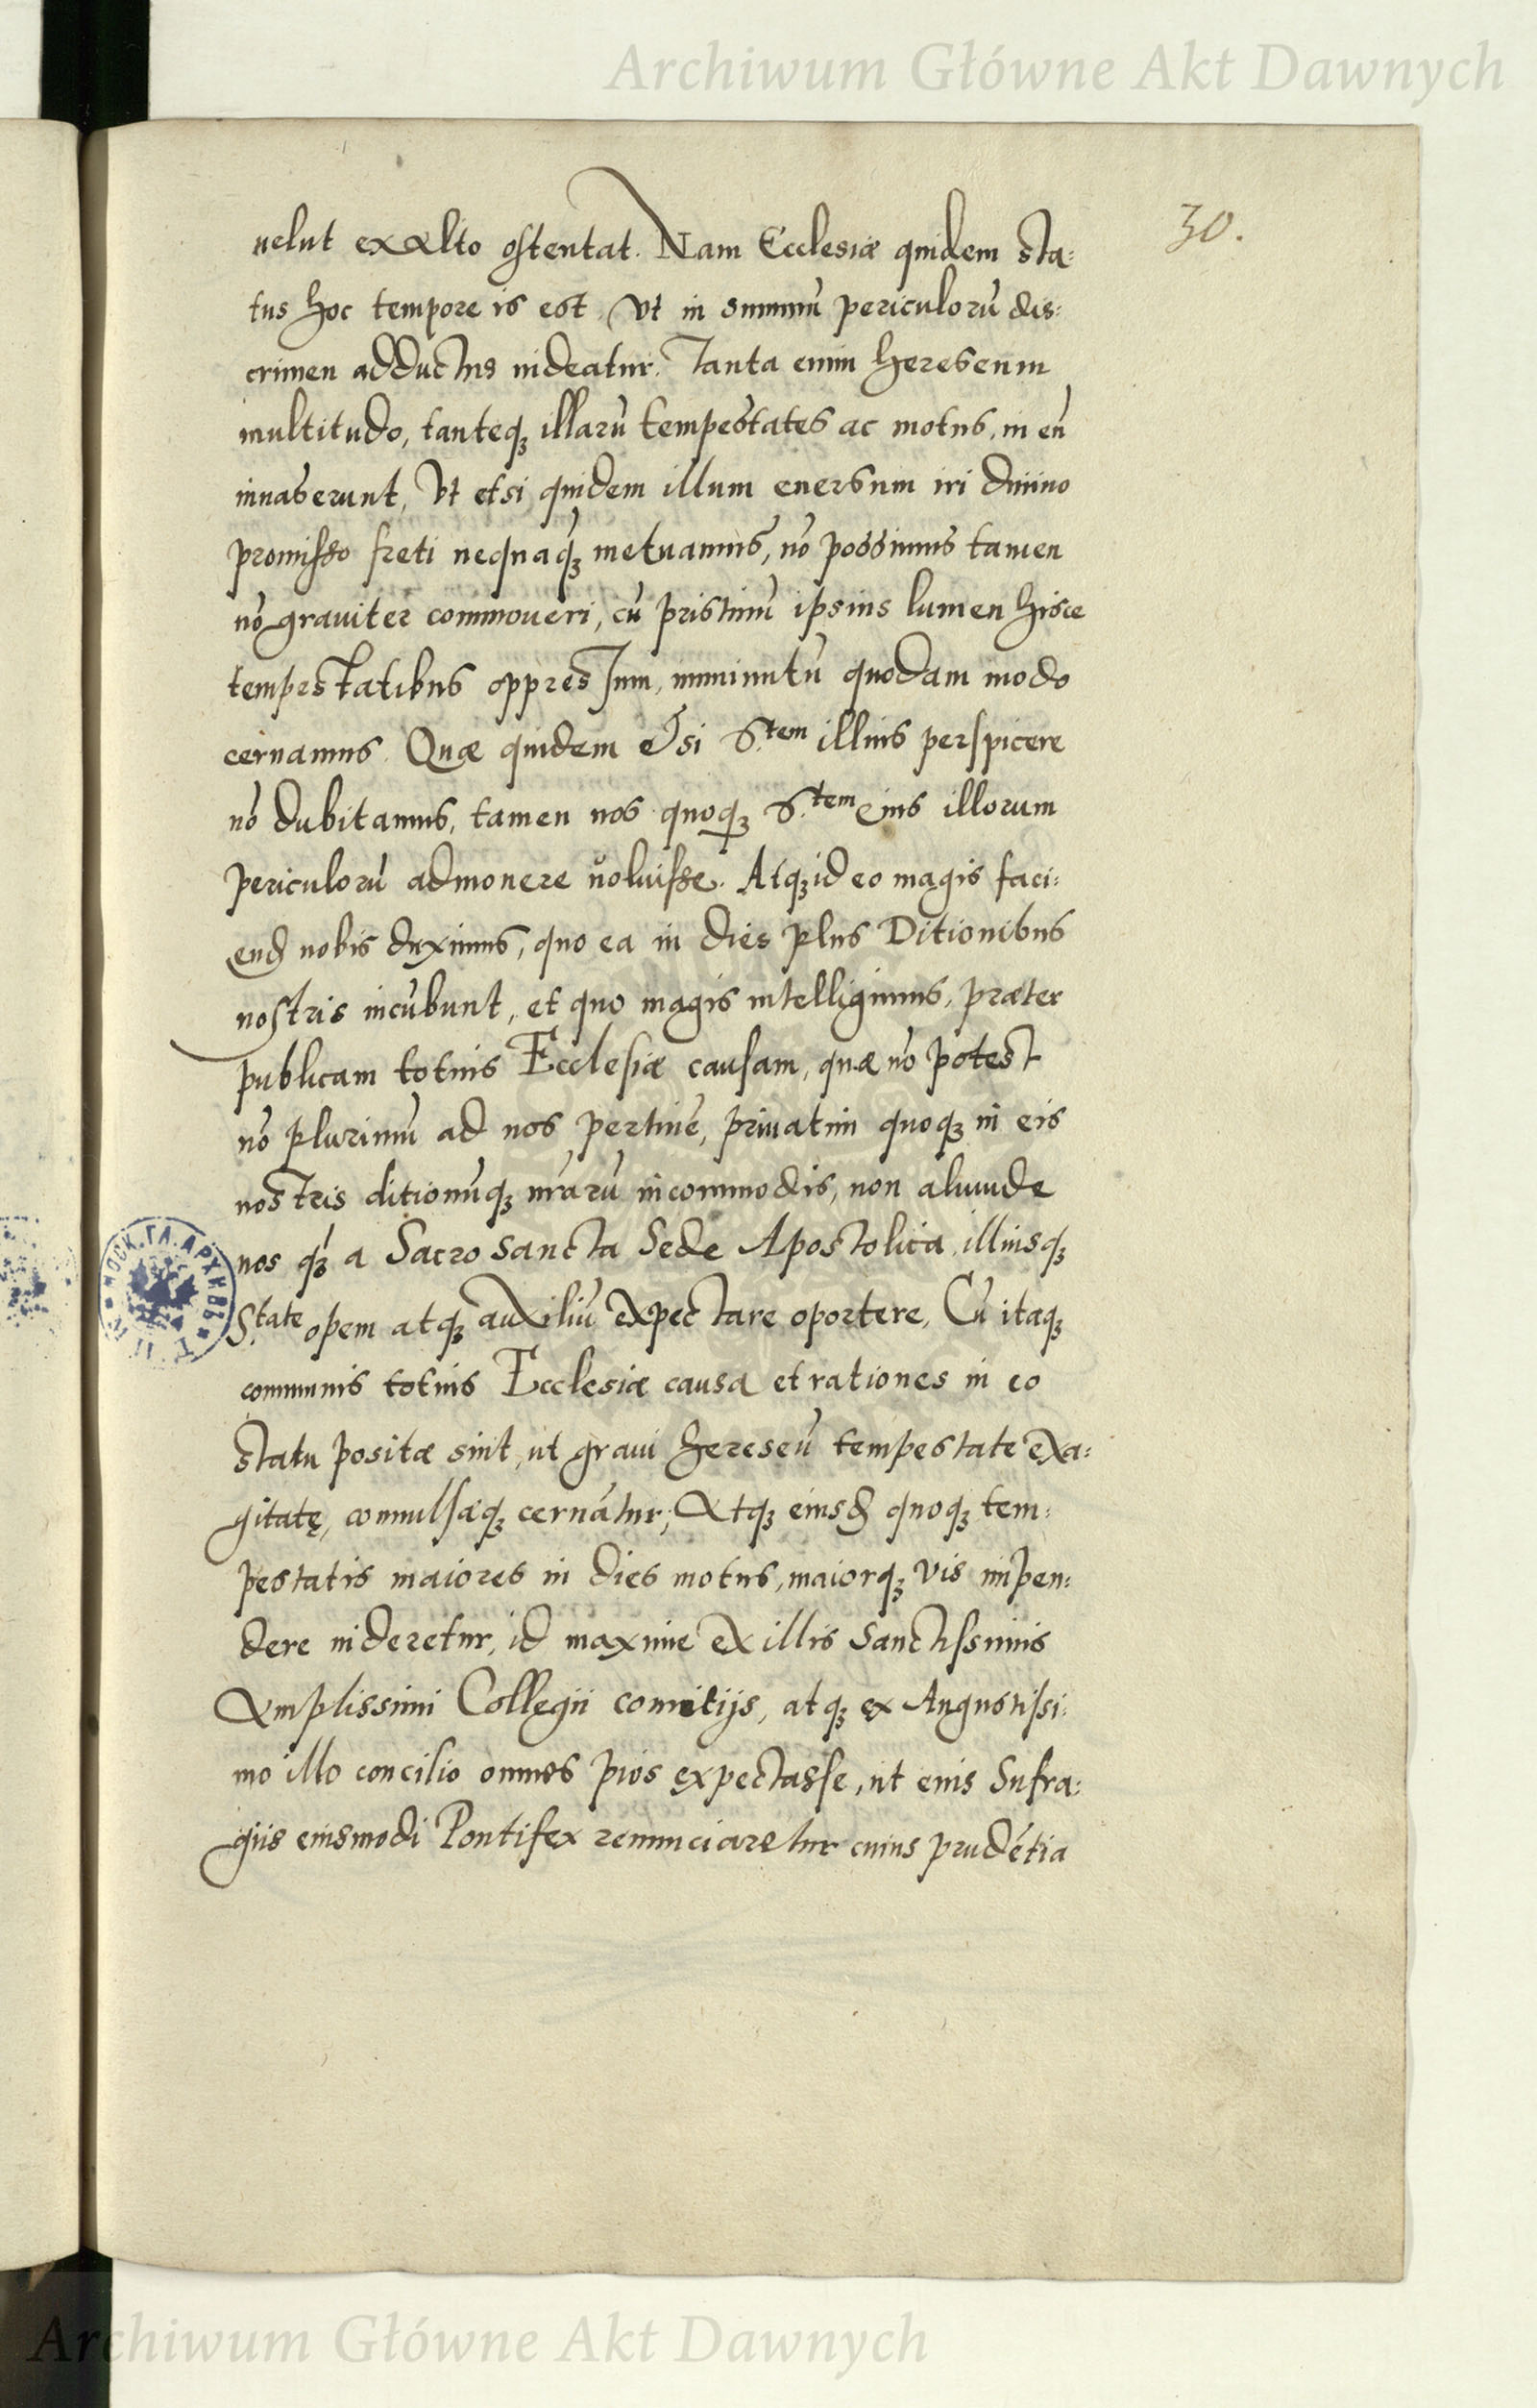 Archiwum Główne Akt Dawnych
30.
uelut ex alto ostentat. Nam Ecclesiæ quidem sta:
tus hoc tempore is est, Vt in summũ periculorũ dis:
crimen adductus uideatur. Tanta enim heresenm
multitudo, tanteq; illarũ tempestates ac motus, in eũ
inuaserunt, Vt etsi quidem illum euersum iri diuino
promisso freti nequaq̃; metuamus, nõ possimus tamen
nõ grauiter commoueri, cũ pristinũ ipsius lumen hisce
tempestatibus oppressum, imminutũ quodam modo
cernamus. Quæ quidem etsi S.tem illius perspicere
nõ dubitamus, tamen nos quoq; S.tem eius illorum
periculorũ admonere uoluisse. Atq; id eo magis faci:
end nobis duximus, quo ea in dies plus Ditionibus
nostris incũbunt, et quo magis intelligimus, præter
publicam totius Ecclesiæ causam, quæ nõ potest
nõ plurimũ ad nos pertinẽ, priuatim quoq; in eis
nostris ditionũq; nrãrũ incommodis, non aliunde
nos q̃; a Sacro sancta Sede Apostolica, illiusq;
S.tate opem atq; auxiliũ expectare oportere. Cũ itaq;
communis totius Ecclesiæ causa et rationes in eo
statu positæ sint, ut graui hereseũ tempestate exa:
gitatę, conuulsæq; cernãtur, Atq; eiusd quoq; tem:
pestatis maiores in dies motus, maiorq; vis impen:
dere uideretur, id maxime ex illis Sanctissimis
Amplissimi Collegii comitijs, atq; ex Augustissi:
mo illo concilio omnes pios expectasse, ut eius Sufra:
giis eiusmodi Pontifex renunciaretur cuius prudẽtia
МОСК. ГЛ. АРХИВЪ
Archiwum Główne Akt Dawnych